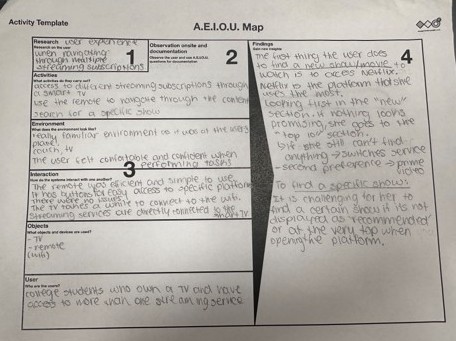 Activity Template
A.E.I.O.U. Map
Research
Research on the user
user experience
when navigating
through multiple
streaming subscriptions
1
Observation onsite and
documentation
Observe the user and use A.E.I.O.U.
questions for documentation
2
Activities
What activities do they carry out?
access to different streaming subscriptions through
a smart TV
use the remote to navigate through the content
search for a specific show
Environment
What does the environment look like?
really familiar environment as it was at the user's
place
couch, tv
The user felt comfortable and confident when
performing tasks
3
Interaction
How do the systems interact with one another?
The remote was efficient and simple to use
It has buttons for easy access to specific platforms
There were no issues
The TV takes a while to connect to the wifi.
Streaming services are directly connected to the
smart TV
Objects
What objects and devices are used?
- TV
- remote
(wifi)
User
Who are the users?
college students who own a TV and have
access to more than one streaming service
Findings
Gain new insights
4
The first thing the user does
to find a new show/movie to
which is to access Netflix.
Netflix is the platform that she
uses the most.
Looking first in the "new"
section. if nothing looks
promising, she goes to the
"top 10" section.
If she still can't find
anything → switches service
- second preference → prime
video
To find a specific show:
It is challenging for her to
find a certain show if its not
displayed as "recommended"
or at the very top when
opening the platform.